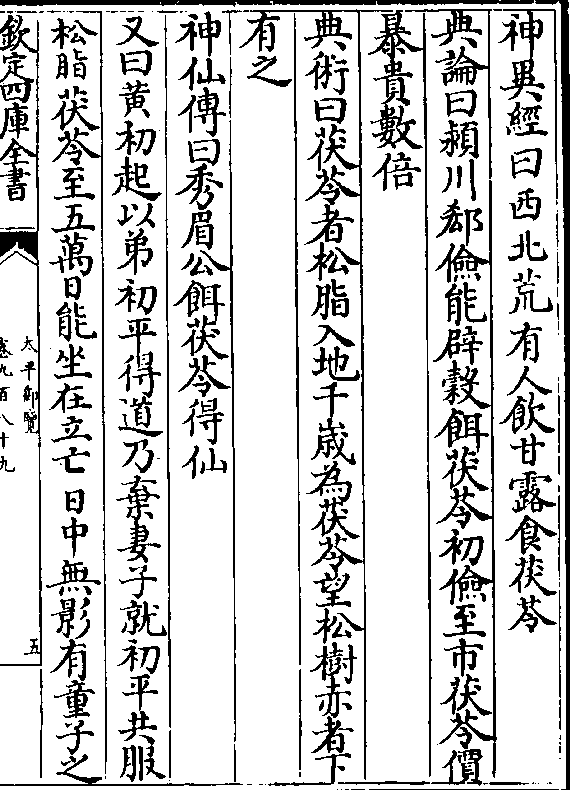 神異經曰西北荒有人飲甘露食茯苓
典論曰潁川郄儉能辟穀餌茯苓初儉至市茯苓價
暴貴數倍
典術曰茯苓者松脂入地千歳為茯苓望松樹赤者下
有之
神仙傳曰秀眉公餌茯苓得仙
又曰黄初起以弟初平得道乃棄妻子就初平共服
松脂茯苓至五萬日能坐在立亡日中無影有童子之
欽定四庫全書
太平御覽
卷九百八十九
五